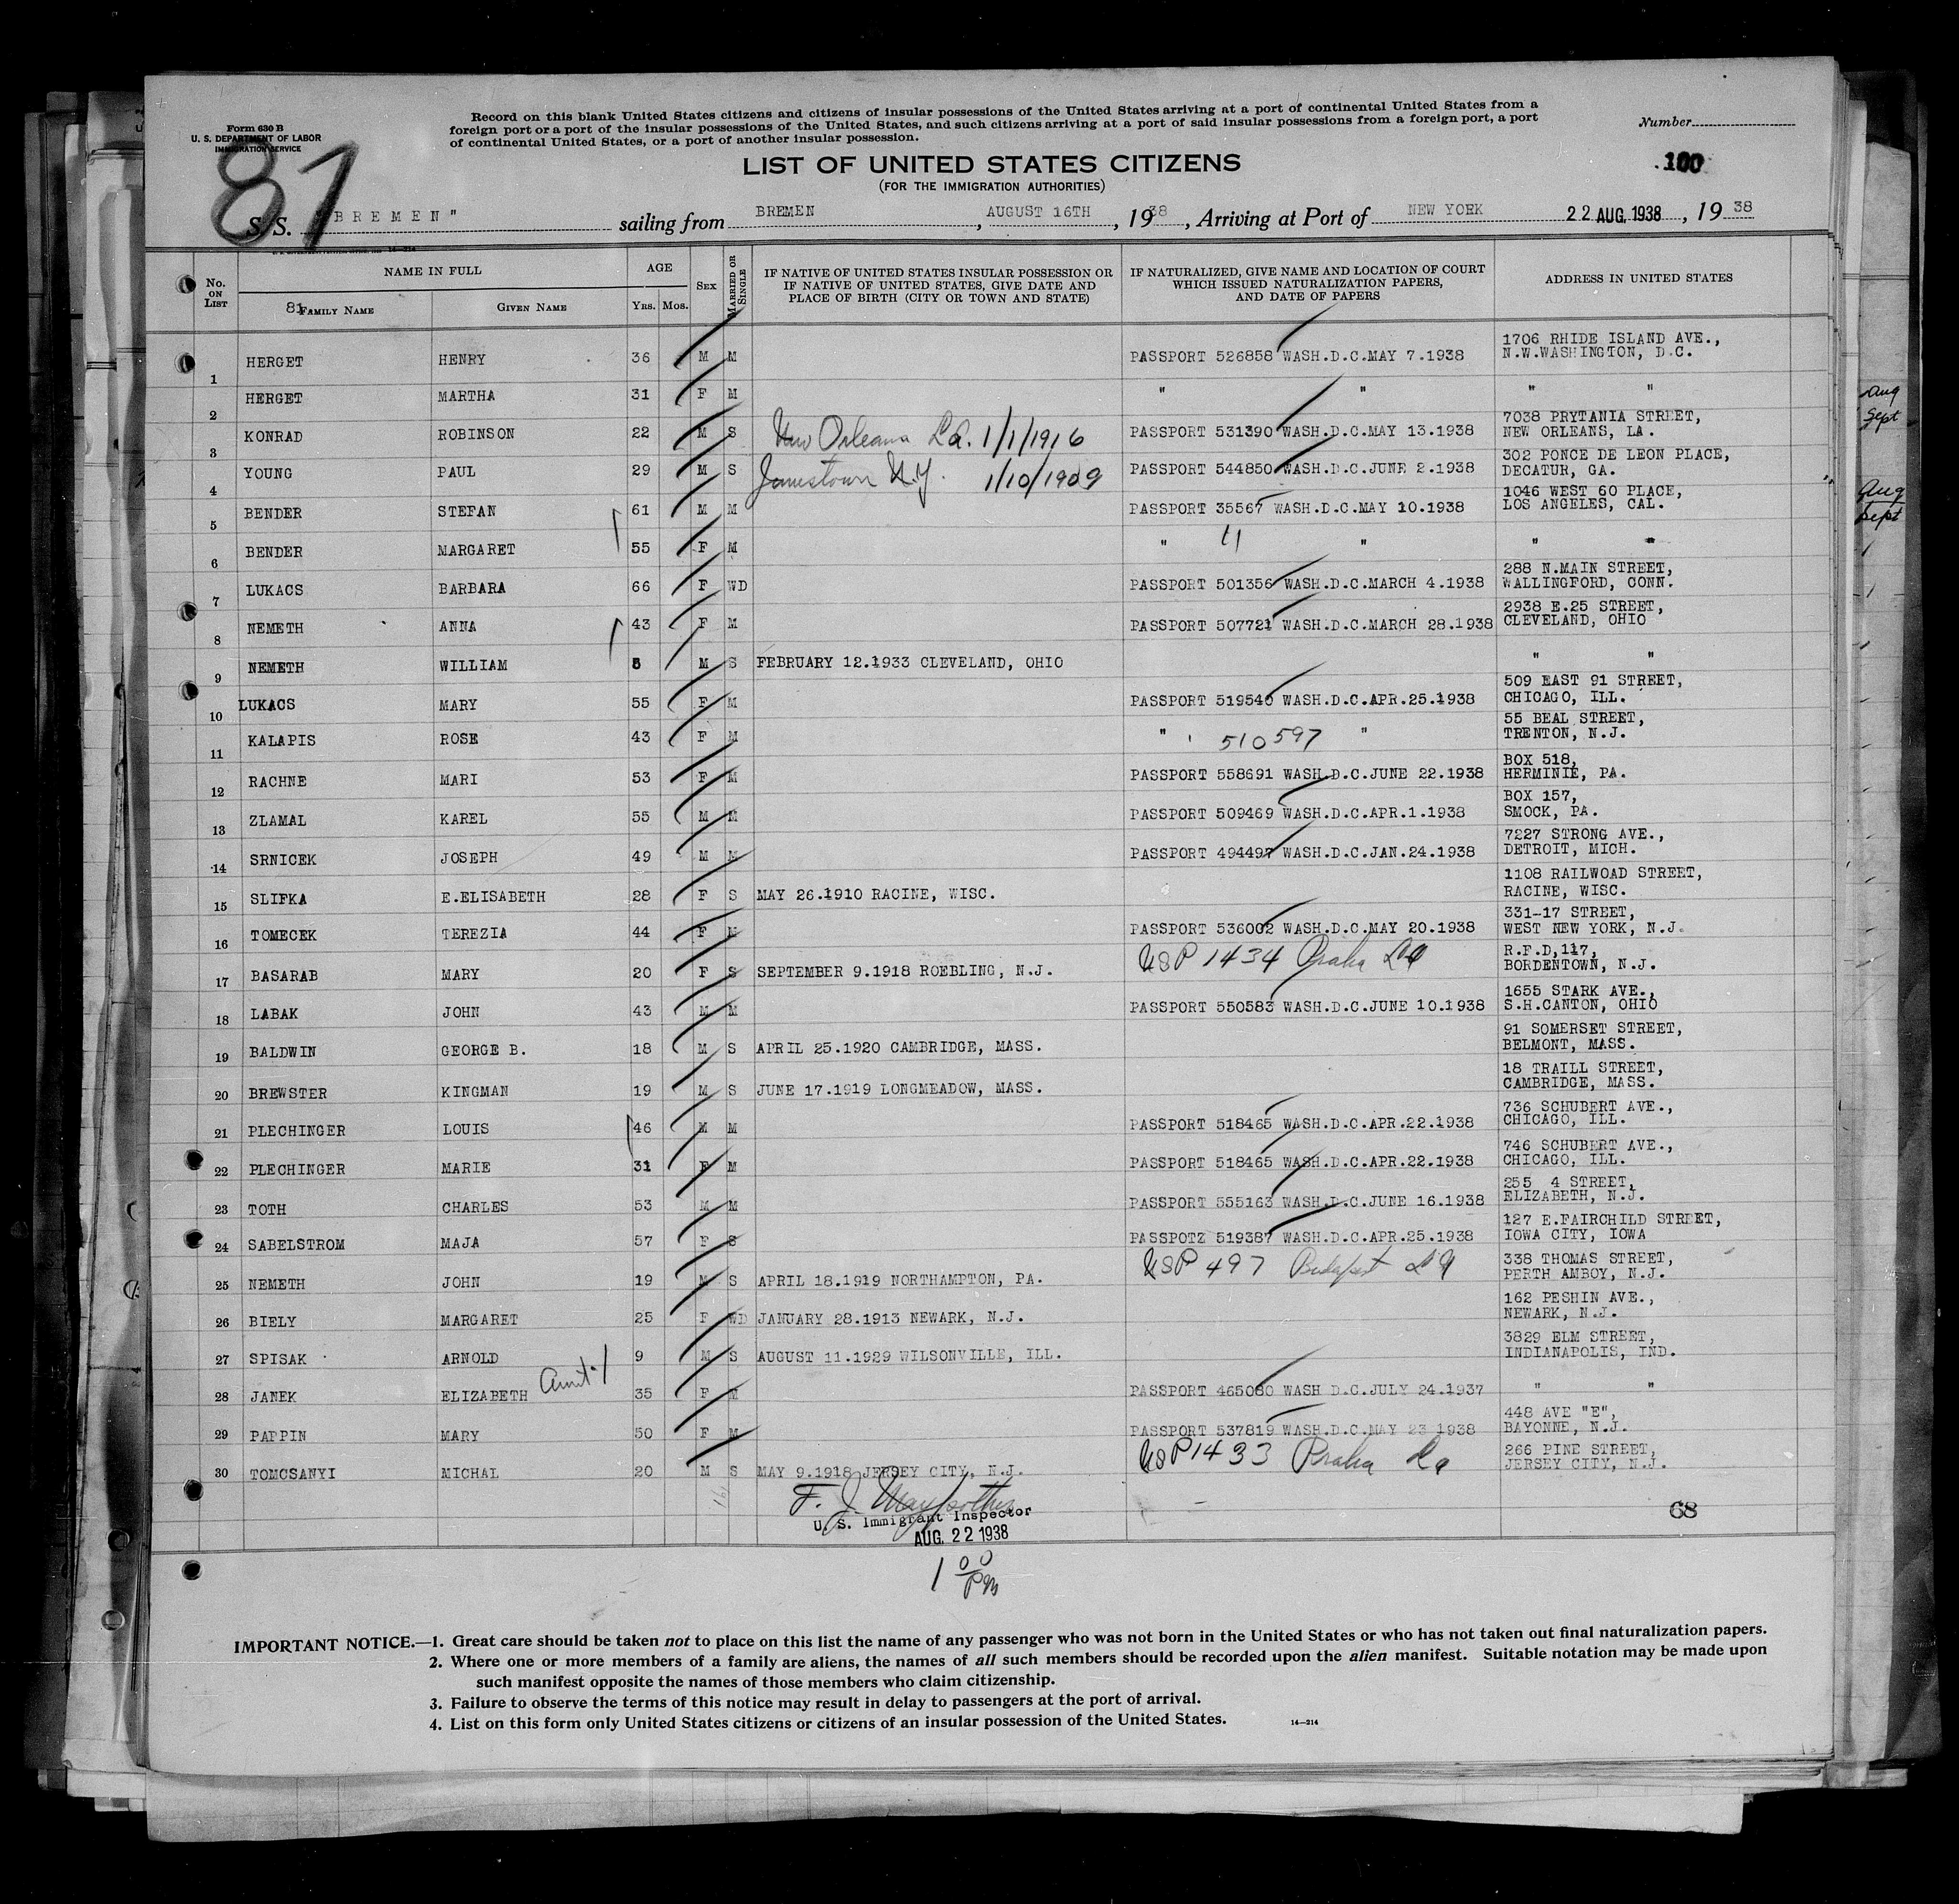 Form 630 B
U. S. DEPARTMENT OF LABOR
IMMIGRATION SERVICE
81
Record on this blank United States citizens and citizens of insular possessions of the United States arriving at a port of continental United States from a
foreign port or a port of the insular possessions of the United States, and such citizens arriving at a port of said insular possessions from a foreign port, a port
of continental United States, or a port of another insular possession.
Number
100
LIST OF UNITED STATES CITIZENS
(FOR THE IMMIGRATION AUTHORITIES)
S. S. BREMEN" sailing from BREMEN, AUGUST 16TH, 1938, Arriving at Port of NEW YORK 22 AUG. 1938, 1938
No. ON LIST NAME IN FULL AGE SEX MARRIED OR SINGLE IF NATIVE OF UNITED STATES INSULAR POSSESSION OR IF NATIVE OF UNITED STATES, GIVE DATE AND PLACE OF BIRTH (CITY OR TOWN AND STATE) IF NATURALIZED, GIVE NAME AND LOCATION OF COURT WHICH ISSUED NATURALIZATION PAPERS, AND DATE OF PAPERS ADDRESS IN UNITED STATES
81 FAMILY NAME GIVEN NAME Yrs. Mos.
1 HERGET HENRY 36 M M PASSPORT 526858 WASH.D.C.MAY 7.1938 1706 RHIDE ISLAND AVE., N.W.WASHINGTON, D.C.
2 HERGET MARTHA 31 F M " " " "
3 KONRAD ROBINSON 22 M S New Orleans La. 1/1/1916 PASSPORT 531390 WASH.D.C.MAY 13.1938 7038 PRYTANIA STREET, NEW ORLEANS, LA.
4 YOUNG PAUL 29 M S Jamestown N.Y. 1/10/1909 PASSPORT 544850 WASH.D.C.JUNE 2.1938 302 PONCE DE LEON PLACE, DECATUR, GA.
5 BENDER STEFAN 61 M M PASSPORT 35567 WASH.D.C.MAY 10.1938 1046 WEST 60 PLACE, LOS ANGELES, CAL.
6 BENDER MARGARET 55 F M " 11 " " "
7 LUKACS BARBARA 66 F WD PASSPORT 501356 WASH.D.C.MARCH 4.1938 288 N.MAIN STREET, WALLINGFORD, CONN.
8 NEMETH ANNA 43 F M PASSPORT 507721 WASH.D.C.MARCH 28.1938 2938 E.25 STREET, CLEVELAND, OHIO
9 NEMETH WILLIAM 5 M S FEBRUARY 12.1933 CLEVELAND, OHIO " "
10 LUKACS MARY 55 F M PASSPORT 519540 WASH.D.C.APR.25.1938 509 EAST 91 STREET, CHICAGO, ILL.
11 KALAPIS ROSE 43 F M " 510597 " 55 BEAL STREET, TRENTON, N.J.
12 RACHNE MARI 53 F M PASSPORT 558691 WASH.D.C.JUNE 22.1938 BOX 518, HERMINIE, PA.
13 ZLAMAL KAREL 55 M M PASSPORT 509469 WASH.D.C.APR.1.1938 BOX 157, SMOCK, PA.
14 SRNICEK JOSEPH 49 M M PASSPORT 494497 WASH.D.C.JAN.24.1938 7227 STRONG AVE., DETROIT, MICH.
15 SLIFKA E.ELISABETH 28 F S MAY 26.1910 RACINE, WISC. 1108 RAILWOAD STREET, RACINE, WISC.
16 TOMECEK TEREZIA 44 F M PASSPORT 536002 WASH.D.C.MAY 20.1938 331-17 STREET, WEST NEW YORK, N.J.
17 BASARAB MARY 20 F S SEPTEMBER 9.1918 ROEBLING, N.J. USP 1434 Praha R.F.D,117, BORDENTOWN, N.J.
18 LABAK JOHN 43 M M PASSPORT 550583 WASH.D.C.JUNE 10.1938 1655 STARK AVE., S.H.CANTON, OHIO
19 BALDWIN GEORGE B. 18 M S APRIL 25.1920 CAMBRIDGE, MASS. 91 SOMERSET STREET, BELMONT, MASS.
20 BREWSTER KINGMAN 19 M S JUNE 17.1919 LONGMEADOW, MASS. 18 TRAILL STREET, CAMBRIDGE, MASS.
21 PLECHINGER LOUIS 46 M M PASSPORT 518465 WASH.D.C.APR.22.1938 736 SCHUBERT AVE., CHICAGO, ILL.
22 PLECHINGER MARIE 31 F M PASSPORT 518465 WASH.D.C.APR.22.1938 746 SCHUBERT AVE., CHICAGO, ILL.
23 TOTH CHARLES 53 M M PASSPORT 555163 WASH.D.C.JUNE 16.1938 255 4 STREET, ELIZABETH, N.J.
24 SABELSTROM MAJA 57 F S PASSPOTZ 519387 WASH.D.C.APR.25.1938 127 E.FAIRCHILD STREET, IOWA CITY, IOWA
25 NEMETH JOHN 19 M S APRIL 18.1919 NORTHAMPTON, PA. USP 497 Budapest 338 THOMAS STREET, PERTH AMBOY, N.J.
26 BIELY MARGARET 25 F WD JANUARY 28.1913 NEWARK, N.J. 162 PESHIN AVE., NEWARK, N.J.
27 SPISAK ARNOLD 9 M S AUGUST 11.1929 WILSONVILLE, ILL. 3829 ELM STREET, INDIANAPOLIS, IND.
28 JANEK ELIZABETH Aunt 35 F M PASSPORT 465080 WASH D.C.JULY 24.1937 " "
29 PAPPIN MARY 50 F M PASSPORT 537819 WASH.D.C.MAY 23 1938 448 AVE "E", BAYONNE, N.J.
30 TOMCSANYI MICHAL 20 M S MAY 9.1918 JERSEY CITY, N.J. USP 1433 Praha 266 PINE STREET, JERSEY CITY, N.J.
F. J.
U. S. Immigrant Inspector
AUG. 22 1938
1 00 PM
68
Aug
Sept
Aug
Sept
IMPORTANT NOTICE.—1. Great care should be taken not to place on this list the name of any passenger who was not born in the United States or who has not taken out final naturalization papers.
2. Where one or more members of a family are aliens, the names of all such members should be recorded upon the alien manifest. Suitable notation may be made upon
such manifest opposite the names of those members who claim citizenship.
3. Failure to observe the terms of this notice may result in delay to passengers at the port of arrival.
4. List on this form only United States citizens or citizens of an insular possession of the United States.
14—214